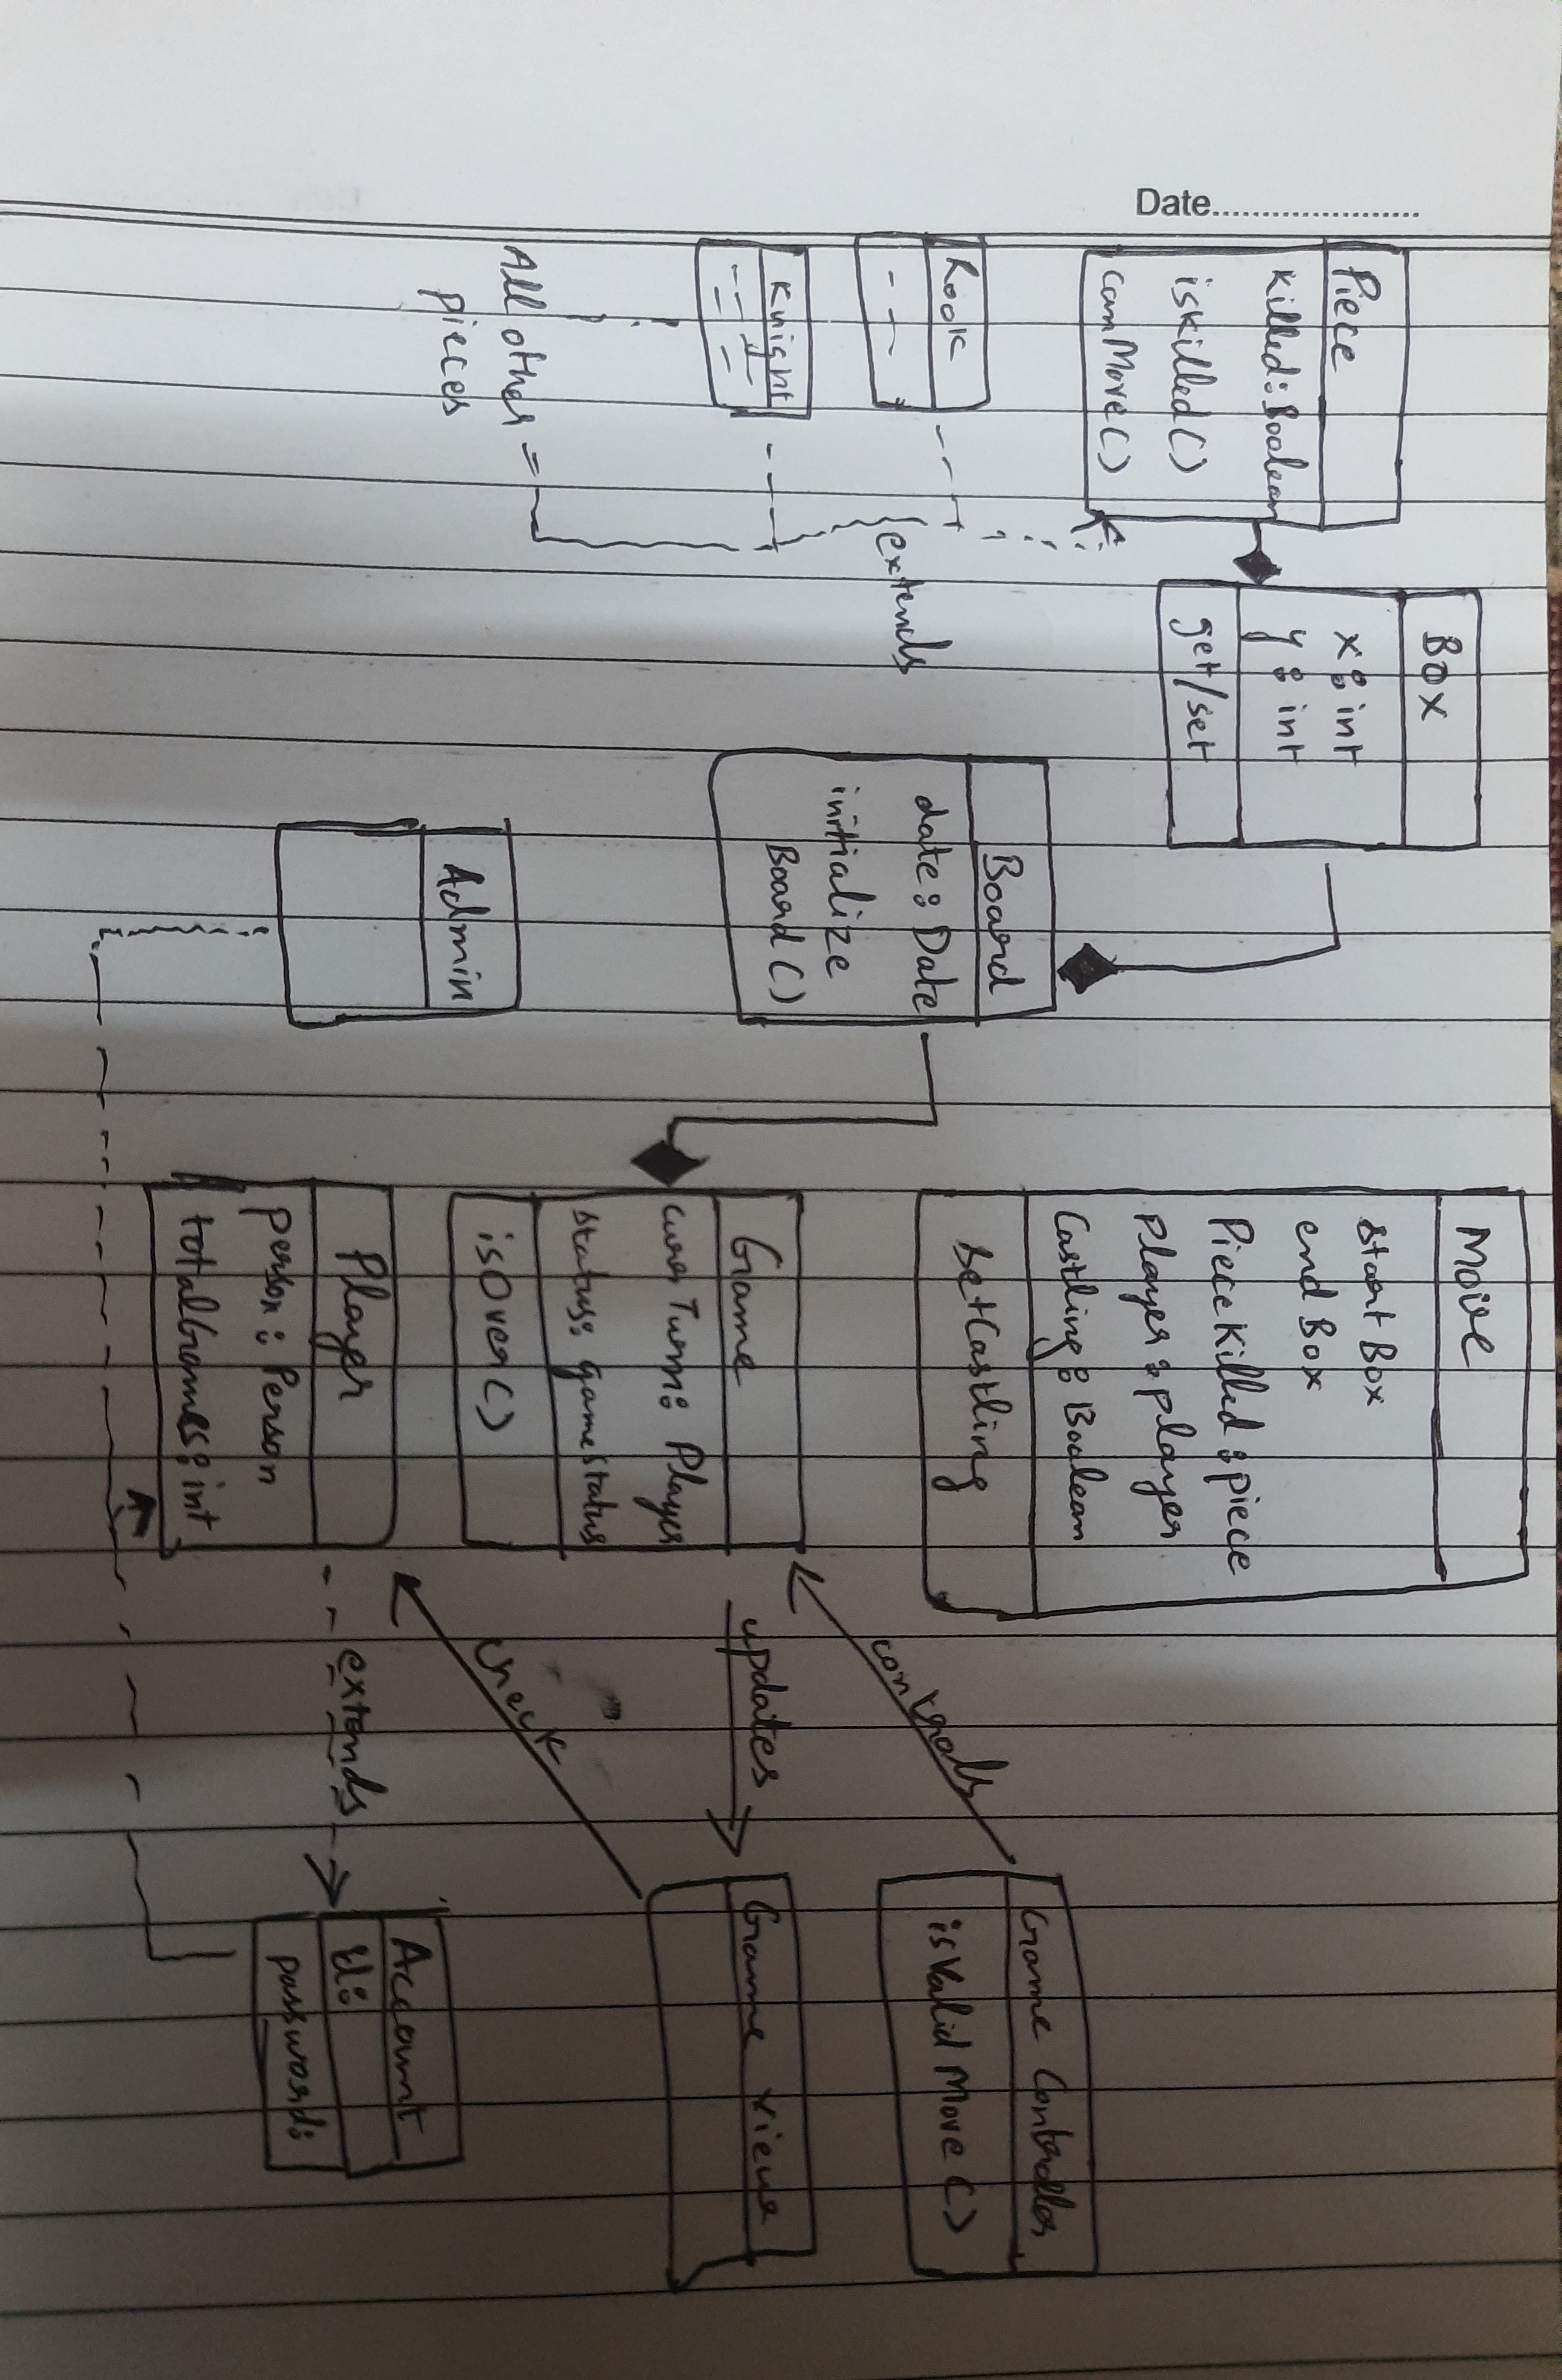 Date
Piece
killed: Boolean
iskilled()
canMove()
Rook
Knight
All other =
pieces
extends
Box
x: int
y: int
get/set
Board
date: Date
initialize
Board()
Admin
Move
start Box
end Box
Piece Killed: piece
Player: player
Castling: Boolean
SetCastling
Game
Turn: Player
status: gamestatus
isOver()
Player
person: Person
totalGames: int
controls
updates
check
extends
Game Controller
isValid Move()
Game View
Account
id:
password: